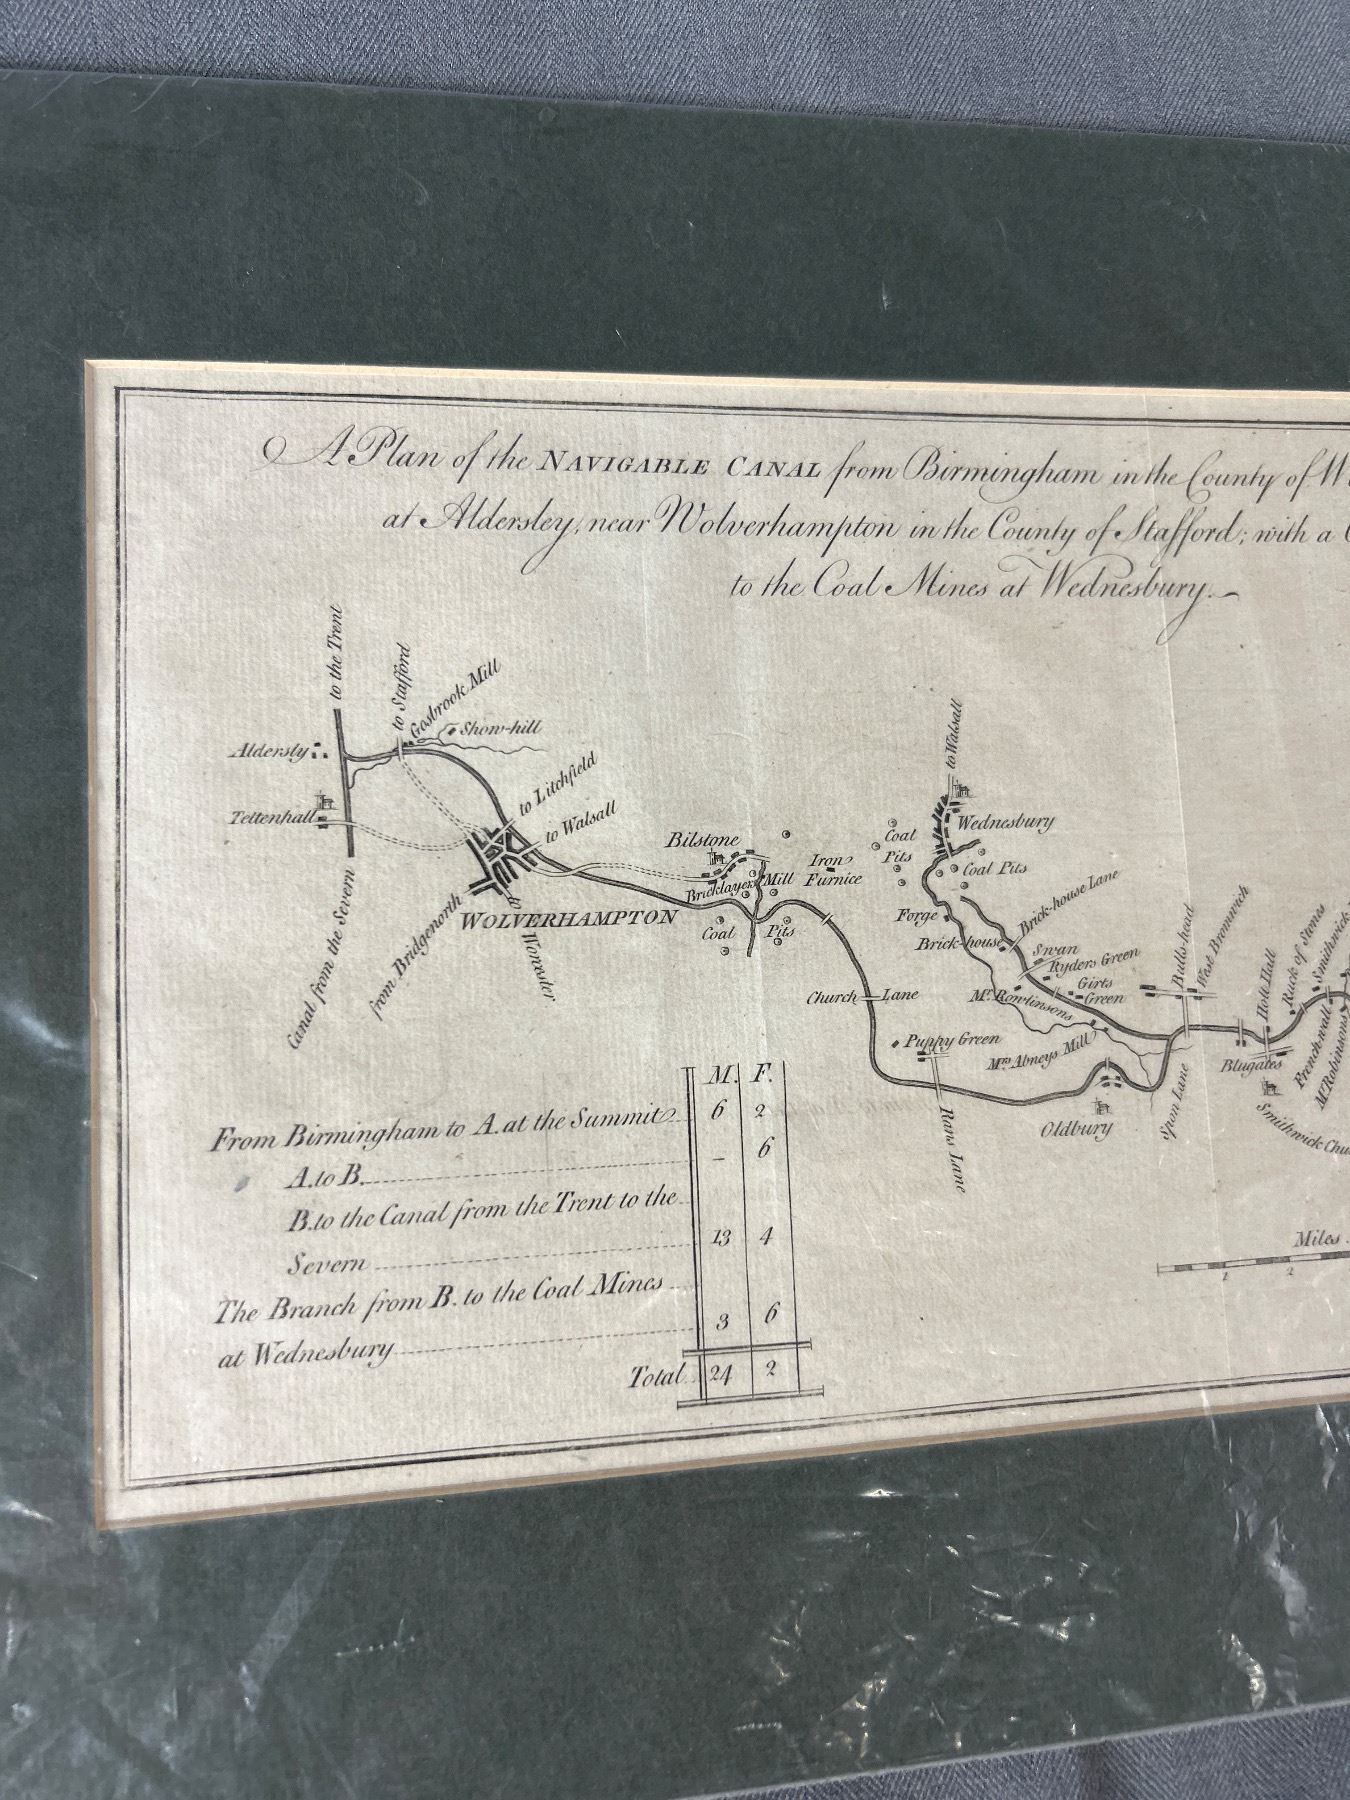 A Plan of the NAVIGABLE CANAL from Birmingham in the County of
at Aldersley, near Wolverhampton in the County of Stafford; with a
to the Coal Mines at Wednesbury.
to the Trent
to Stafford
Gosbrook Mill
Show-hill
Aldersly
Tettenhall
to Litchfield
to Walsall
Canal from the Severn
from Bridgenorth
WOLVERHAMPTON
to Worcester
Bilstone
Bricklayers Mill
Coal Pits
Iron
Furnice
to Walsall
Wednesbury
Coal
Pits
Coal Pits
Forge
Brick-house
Brick-house Lane
Swan
Ryders Green
Girts
Green
Mr. Rowlinsons
Mrs. Abneys Mill
Church Lane
Puppy Green
Rans Lane
Oldbury
Spon Lane
Bulls-head
West Bromwich
Blugates
Holt Hall
Ruck of Stones
Smithwick
French-wall
Mr. Robinsons
Smithwick
M. F.
From Birmingham to A. at the Summit 6 2
A. to B. – 6
B. to the Canal from the Trent to the
Severn 13 4
The Branch from B. to the Coal Mines
at Wednesbury 3 6
Total 24 2
Miles
1 2